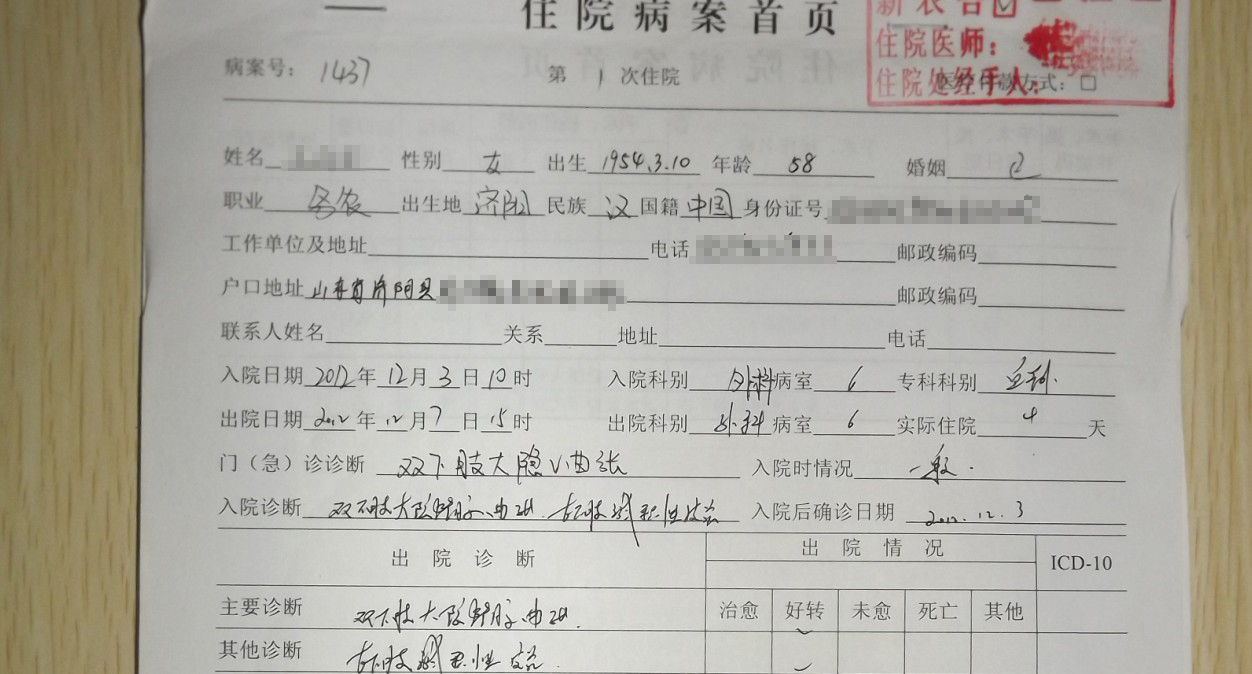 住院病案首页
新农合
住院医师：
住院处经手人：
病案号：1437 第 1 次住院 医疗付款方式：□
姓名 性别 女 出生 1954.3.10 年龄 58 婚姻 已
职业 务农 出生地 济阳 民族 汉 国籍 中国 身份证号
工作单位及地址 电话 邮政编码
户口地址 山东省济阳县 邮政编码
联系人姓名 关系 地址 电话
入院日期 2012 年 12 月 3 日 10 时 入院科别 外科 病室 6 专科科别
出院日期 2012 年 12 月 7 日 15 时 出院科别 外科 病室 6 实际住院 4 天
门（急）诊诊断 双下肢大隐V曲张 入院时情况 一般.
入院诊断 双下肢大隐静脉曲张. 右下肢 性皮炎 入院后确诊日期 2012.12.3
出院诊断 出院情况 ICD-10
治愈 好转 未愈 死亡 其他
主要诊断 双下肢大隐静脉曲张.
其他诊断 右下肢 性皮炎.